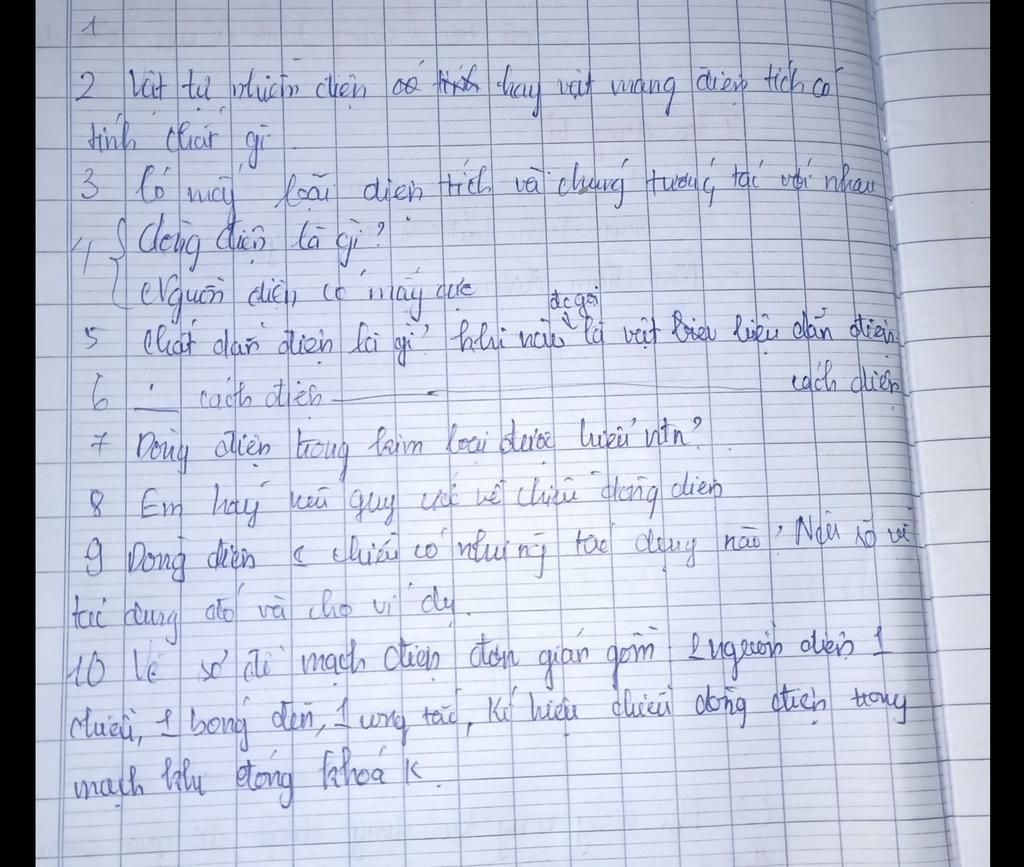 1
2 Vật tự nhiên điện có hay vật mang điện tích có
tính chất gì
3 Có mấy loại điện tích và chúng tương tác với nhau
4 { dòng điện là gì?
Nguồn điện có mấy cực
đc gọi
5 Chất dẫn điện là gì? khi nào là vật liệu dẫn điện
6 — cách điện — cách điện
7 Dòng điện trong kim loại được hiểu ntn?
8 Em hãy nêu quy ước về chiều dòng điện
9 Dòng điện chiều có những tác dụng nào? Nêu rõ về
tác dụng đó và cho ví dụ.
10 Vẽ sơ đồ mạch điện đơn giản gồm 1 nguồn điện 1
chiều, 1 bóng đèn, 1 công tắc, Kí hiệu chiều dòng điện trong
mạch khi đóng khoá K.